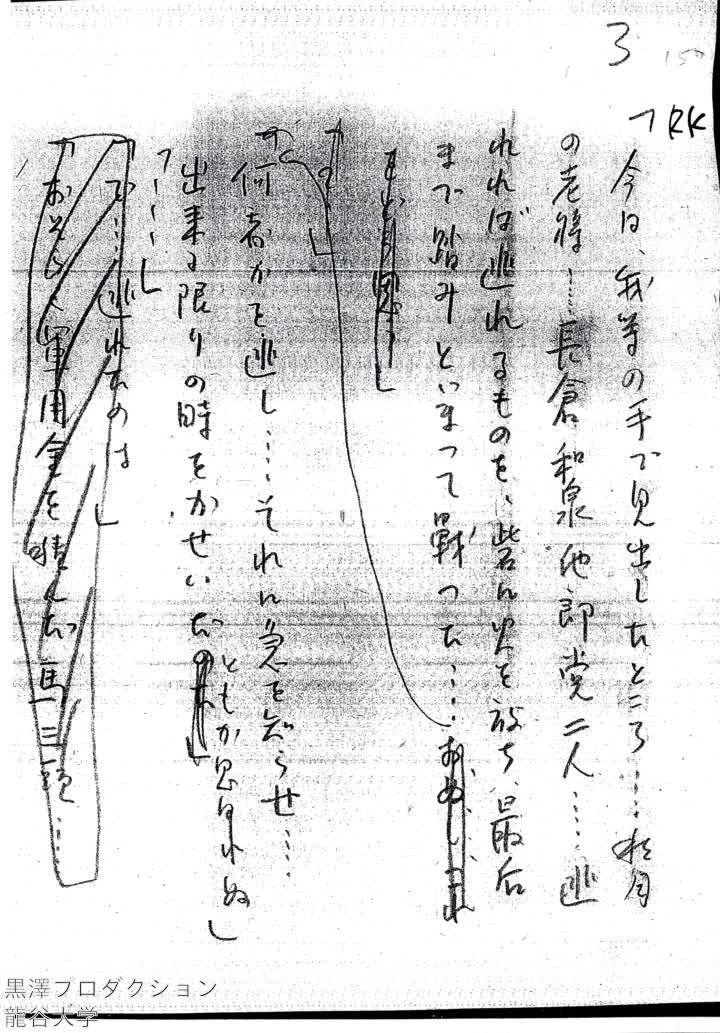 3
150
RK
「今日、我等の手で見出したところ……秋月
の老将……長倉和泉他郎党二人……逃
れれば逃れるものを、砦に火を放ち、最后
まで踏みとどまって戦った……
「何者かを逃し……それに急を知らせ……
出来る限りの時をかせいだ
としか思はれぬ」
「……」
「で……逃れたのは」
「おそらく軍用金を積んだ馬三頭……
黒澤プロダクション
龍谷大学